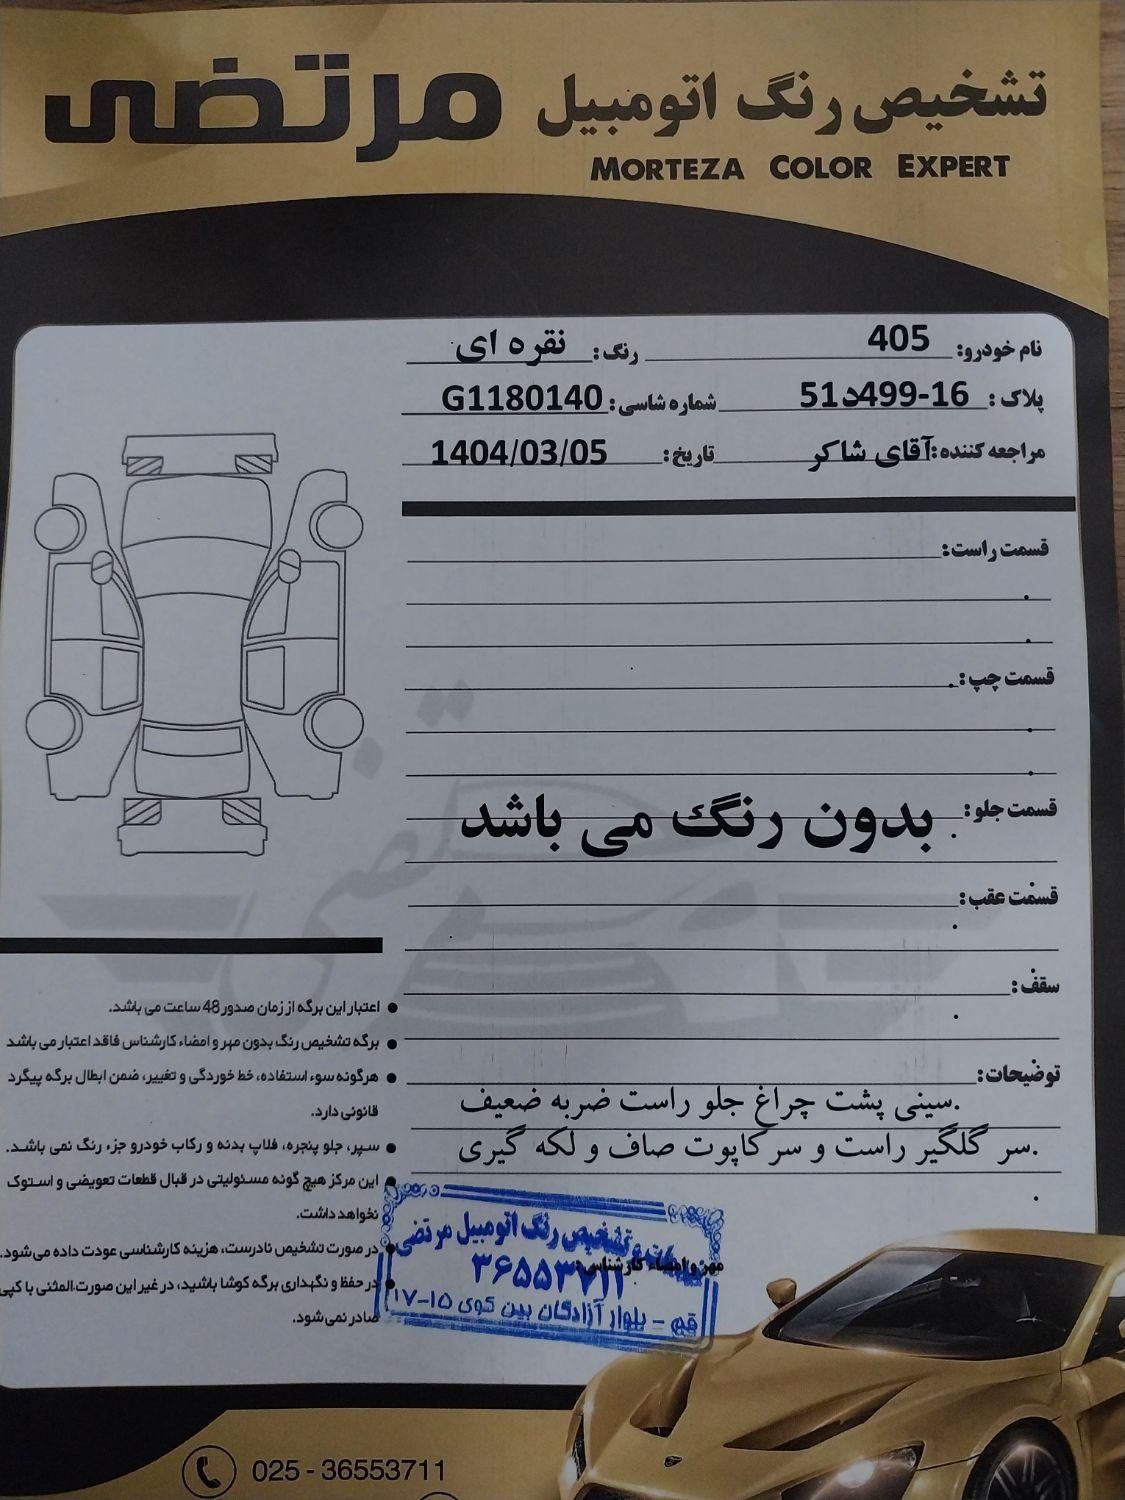 تشخیص رنگ اتومبیل مرتضی
MORTEZA COLOR EXPERT
نام خودرو: 405 رنگ: نقره ای
پلاک: 51د499-16 شماره شاسی: G1180140
مراجعه کننده: آقای شاکر تاریخ: 1404/03/05
قسمت راست:
قسمت چپ:
قسمت جلو: بدون رنگ می باشد
قسمت عقب:
سقف:
توضیحات:
.سینی پشت چراغ جلو راست ضربه ضعیف
.سر گلگیر راست و سر کاپوت صاف و لکه گیری
مهر و امضاء کارشناسی:
تشخیص رنگ اتومبیل مرتضی
۳۶۵۵۳۷۱۱
قم - بلوار آزادگان بین کوی ۱۵-۱۷
● اعتبار این برگه از زمان صدور 48 ساعت می باشد.
● برگه تشخیص رنگ بدون مهر و امضاء کارشناس فاقد اعتبار می باشد
● هرگونه سوء استفاده، خط خوردگی و تغییر، ضمن ابطال برگه پیگرد
قانونی دارد.
● سپر، جلو پنجره، فلاپ بدنه و رکاب خودرو جزء رنگ نمی باشد.
● این مرکز هیچ گونه مسئولیتی در قبال قطعات تعویضی و استوک
نخواهد داشت.
● در صورت تشخیص نادرست، هزینه کارشناسی عودت داده می شود.
● در حفظ و نگهداری برگه کوشا باشید، در غیر این صورت المثنی یا کپی
صادر نمی شود.
025 - 36553711